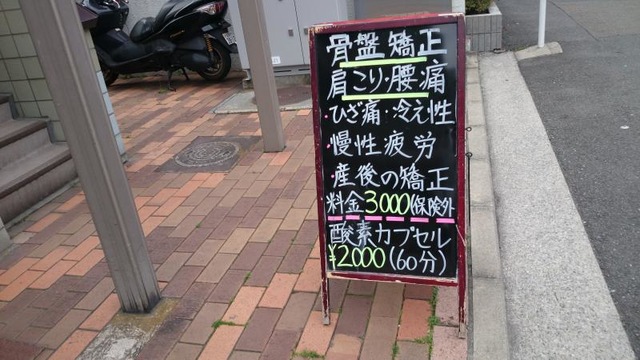 骨盤矯正
肩こり・腰痛
・ひざ痛・冷え性
・慢性疲労
・産後の矯正
料金3000(保険外)
酸素カプセル
¥2,000(60分)